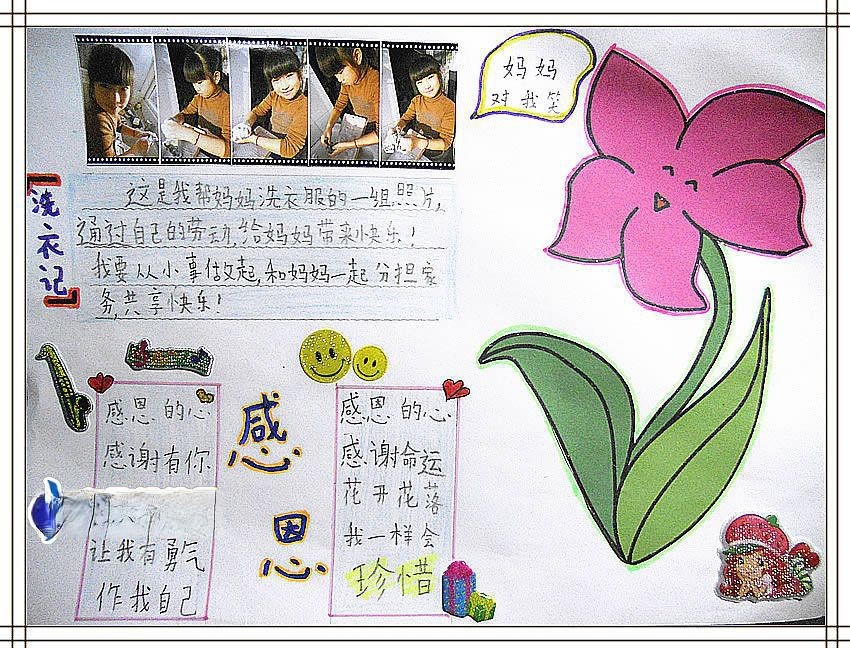 妈妈
对我笑
洗衣记
这是我帮妈妈洗衣服的一组照片,
通过自己的劳动,给妈妈带来快乐!
我要从小事做起,和妈妈一起分担家
务,共享快乐!
感恩的心
感谢有你
让我有勇气
作我自己
感恩
感恩的心
感谢命运
花开花落
我一样会
珍惜